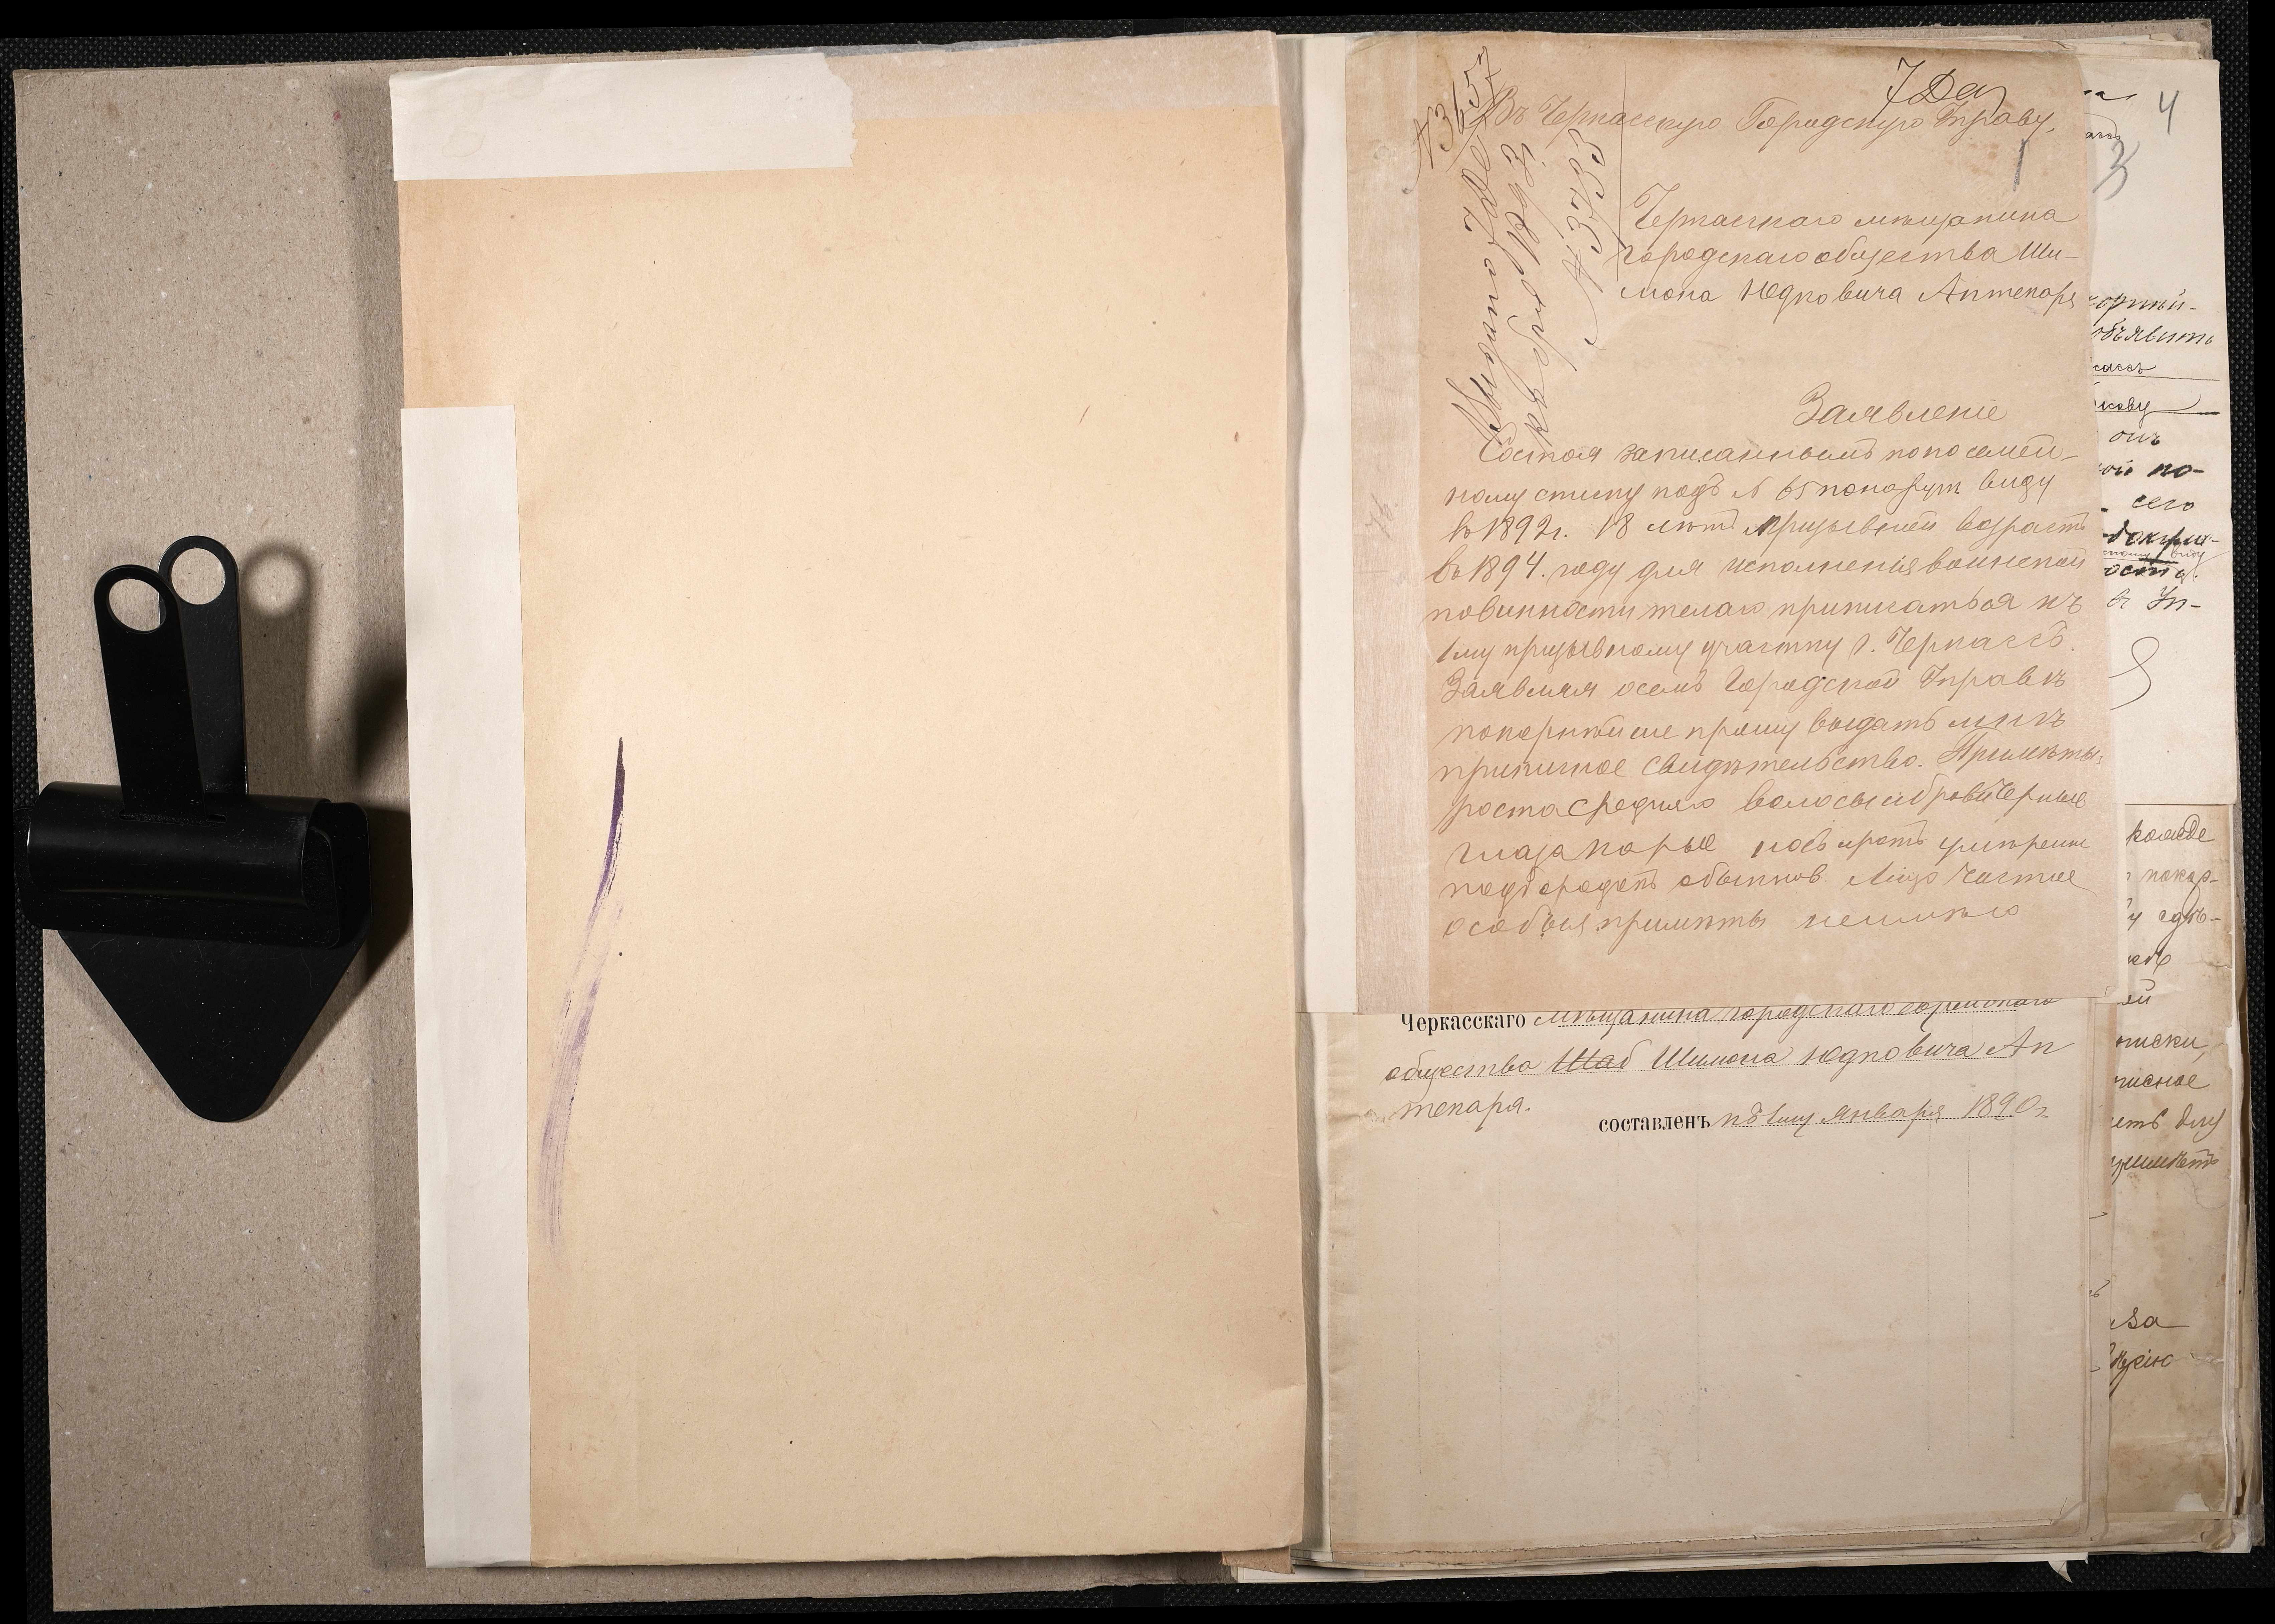 7 Дек
№ 3657
Въ Черкасскую Городскую Управу.
Выдано 7 Де-
кабря 1893.
№ 3735
4
3
Черкасскаго мѣщанина
городскаго общества Ши-
мона Юдковича Аптекаря
Заявленіе
Состоя записаннымъ по посемей-
ному списку подъ № 65 по наруж виду
въ 1892 г. 18 лѣтъ призывной возрастъ
въ 1894. году для исполненья воинской
повинности желаю приписаться къ
1му призывному участку г. Черкассъ.
Заявляя осемъ Городской Управѣ
покорнѣише прошу выдать мнѣ
приписное свидѣтельство. Примѣты:
роста средняго волосы и брови черные
глаза карые носъ иротъ умѣренные
подбородокъ обыкнов. Лицо чистое
особыя примѣты неимѣю
Черкасскаго мѣщанина городскаго еврейскаго
общества Шаб Шимона Юдковича Ап
текаря.
составленъ къ 1му января 1890 г.
объявить
онъ
по-
сего
докуме-
Уп-